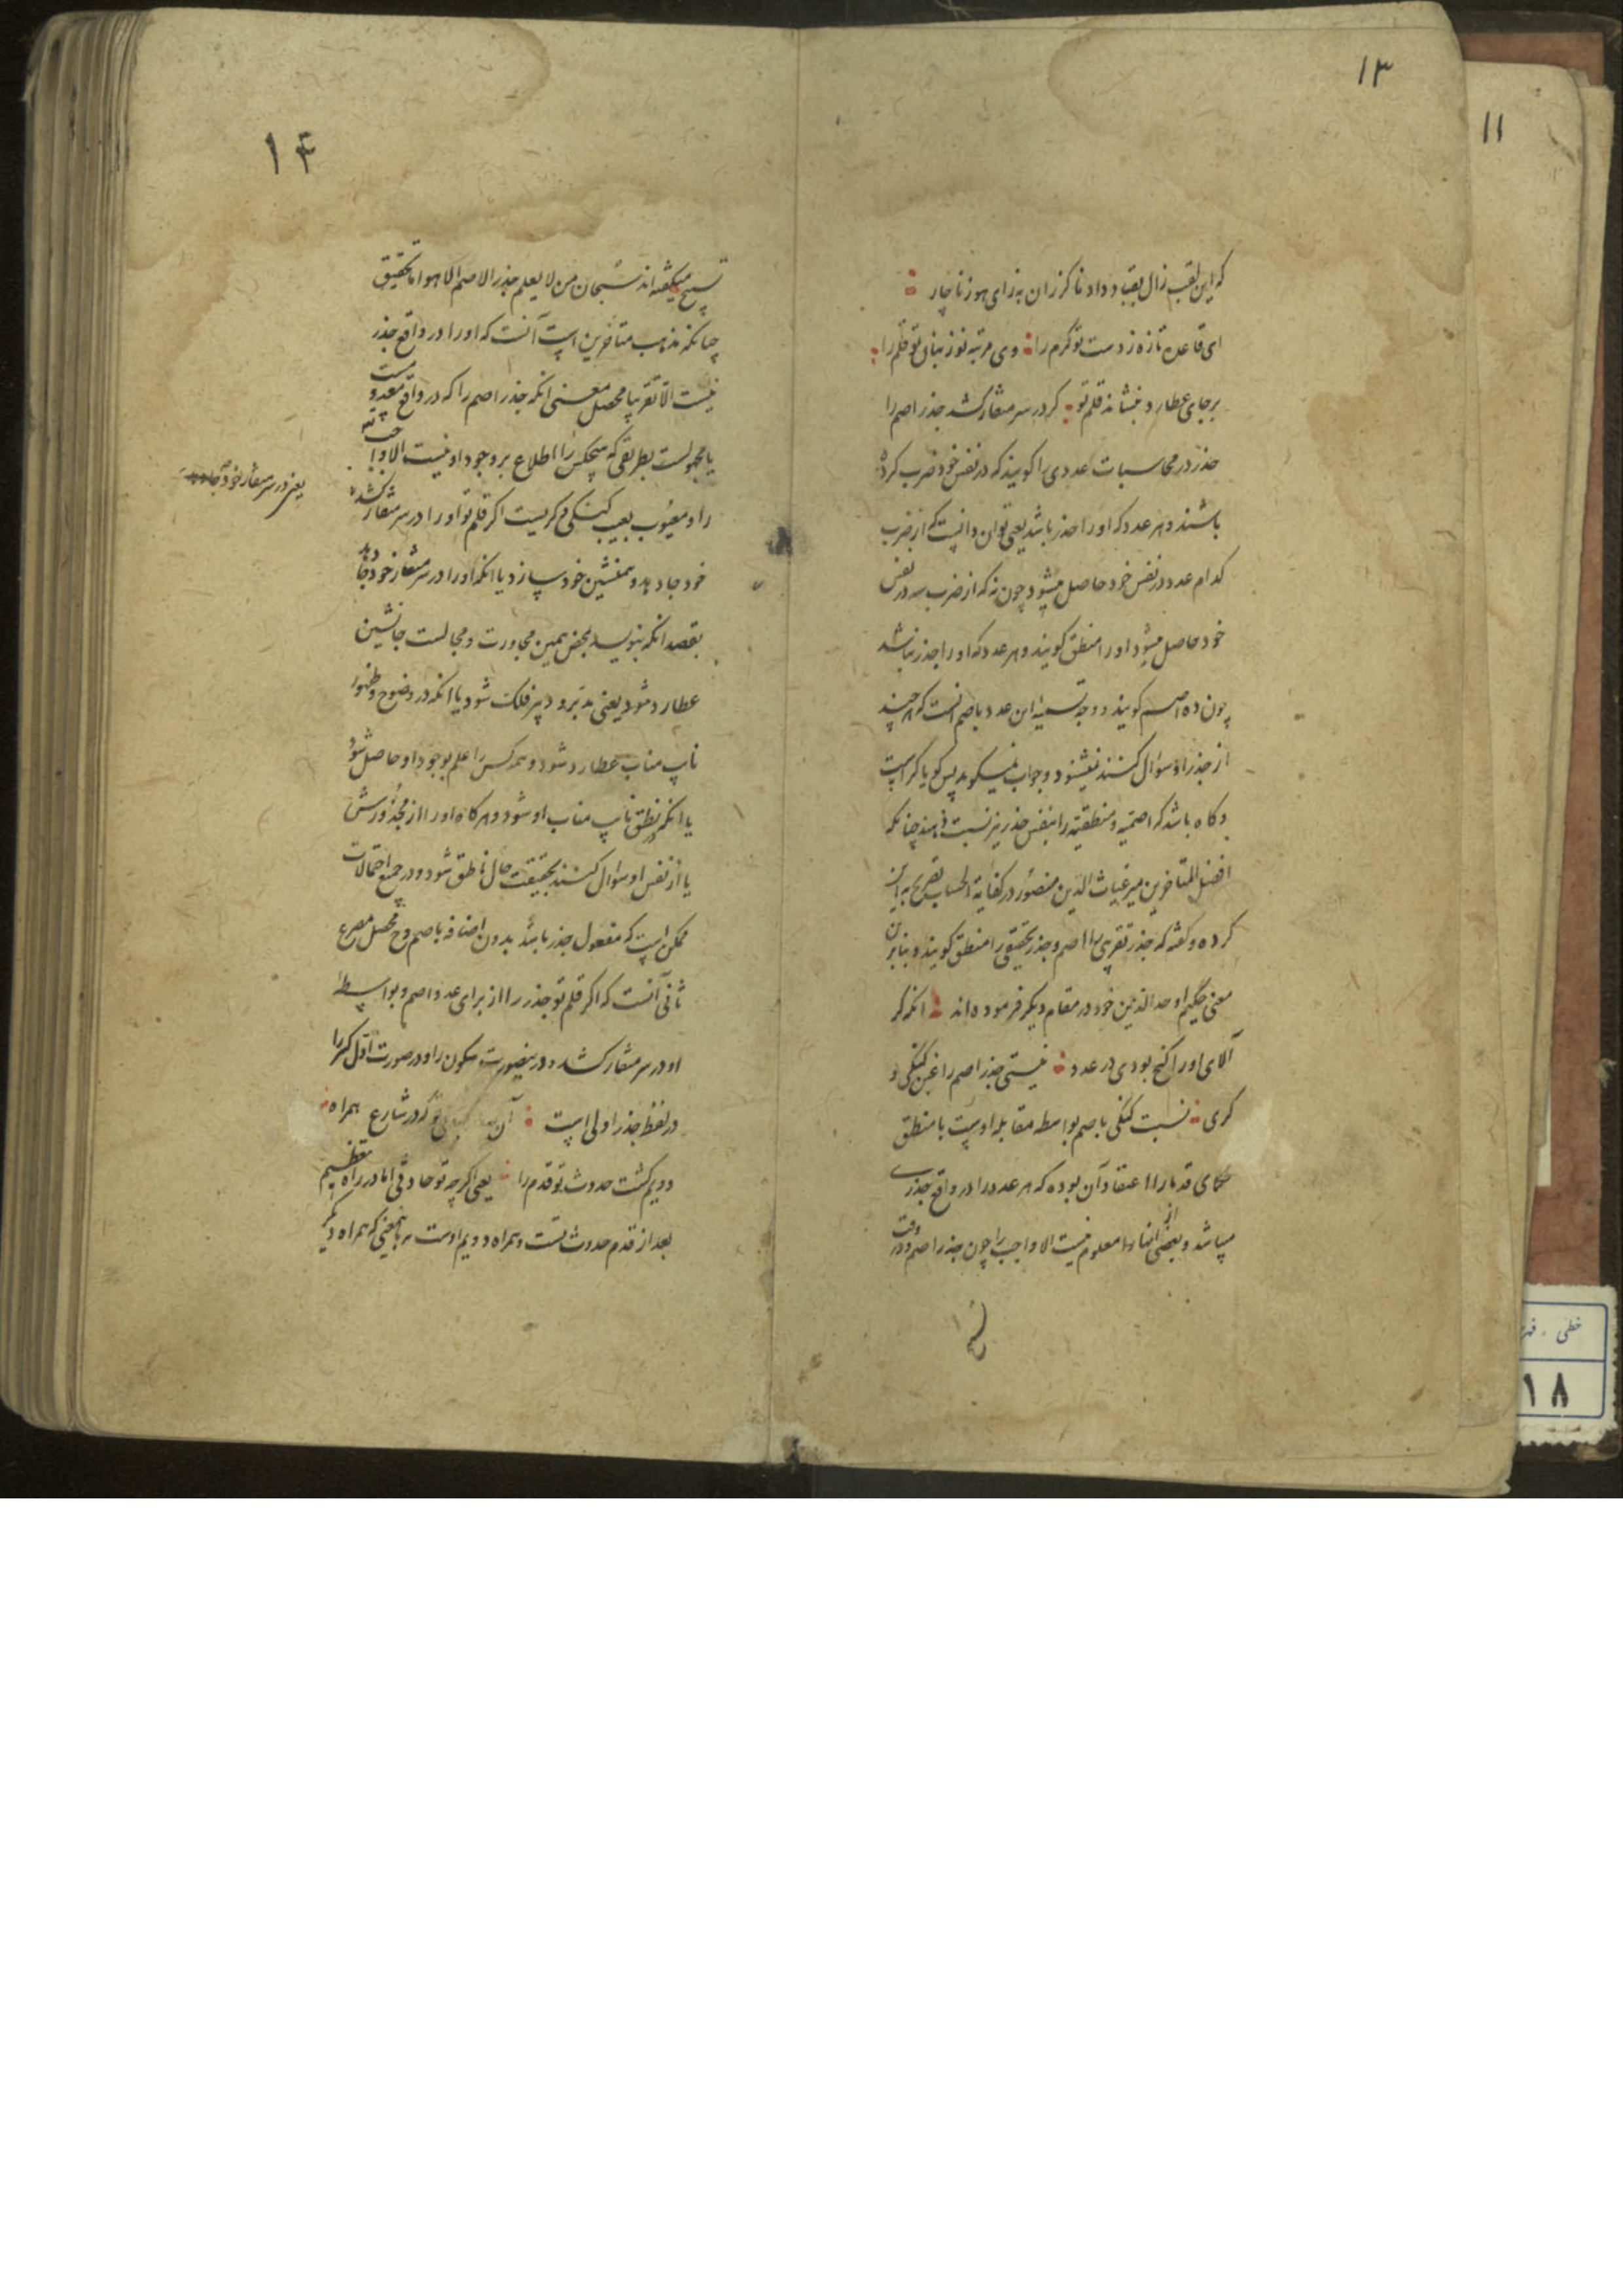 ۱۳
که این لقب زال بقباد داد نا کرزان به زای هوز ناچار
ای قاعده تازه ز دست تو کرم را وی مرتبه نو ز بنان تو قلم را
بر جای عطارد بنشاند قلم تو کر در سر منقار کشد جذر اصم را
جذر در محاسبات عددی را کویند که در نفس خود ضرب کرده
باشند و هر عدد که او را جذر باشد یعنی توان دانست که از ضرب
کدام عدد در نفس خود حاصل میشود چون نه که از ضرب سه در نفس
خود حاصل میشود او را منطق کویند و هر عدد که او را جذر نباشد
چون ده اصم کویند و وجه تسمیه این عدد باصم انست که هر چند
از جذر او سوال کنند نیشنود و جواب نمیکوید پس کویا کر است
و کاه باشد که اصمیه و منطقیه را بنفس جذر نیز نسبت دهند چنانکه
افضل المتاخرین میر غیاث الدین منصور در کفایة الحساب تصریح به آن
کرده و کفته که جذر تقریبی را اصم و جذر تحقیقی را منطق کویند و بنابرین
معنی حکیم اوحد الدین خود در مقام دیکر فرموده اند انکه کر
آلای او را کنج بودی در عدد نیستی جذر اصم را غبن کنکی و
کری نسبت کنکی باصم بواسطه مقابله اوست با منطق
حکمای قدما را اعتقاد آن بوده که هر عدد را در واقع جذری
میباشد و بعضی از انها را معلوم نیست الا واجب را چون جذر اصم و در وقت
۱۴
تسبیح میکفته اند سبحان من لا یعلم جذر الاصم الا هو اما تحقیق
چنانکه مذهب متاخرین است آنست که او را در واقع جذر
نیست الا تقریبا محصل معنی انکه جذر اصم را که در واقع معدومست
یا مجهولست بطریقی که هیچکس را اطلاع بر وجود او نیست الا واجب
را و معیوب بعیب کنکی و کریست اکر قلم تو او را در سر منقار کشد
خود جا دهد و همنشین خود سازد یا انکه او را در سر منقار خود جا دهد
بقصد انکه بنویسد بمحض همین مجاورت و مجالست جانشین
عطارد شود یعنی مدبر و دبیر فلک شود یا انکه در وضوح و ظهور
نایب مناب عطارد شود و همه کس را علم بوجود او حاصل شود
یا انکه در نطق نایب مناب او شود و هر کاه او را از مجذورش
یا از نفس او سوال کنند بحقیقت حال ناطق شود و در جمیع احتمالات
ممکن است که مفعول جذر باشد بدون اضافه باصم و ح محصل مصرع
ثانی آنست که اکر قلم تو جذر را از برای عدد اصم و بواسطه
او در سر منقار کشد و در ینصورت سکون را و در صورت اول کسر را
در لفظ جذر اولی است آن که در شارع همراه
دویم کشت حدوث تو قدم را یعنی اکر چه تو حادثی اما در راه تعظیم
بعد از قدم حدوث تست و همراه دویم اوست نه باینمعنی که همراه دیکر
یعنی در سر منقار خود جا دهد
۱۱
خطی
۱۸